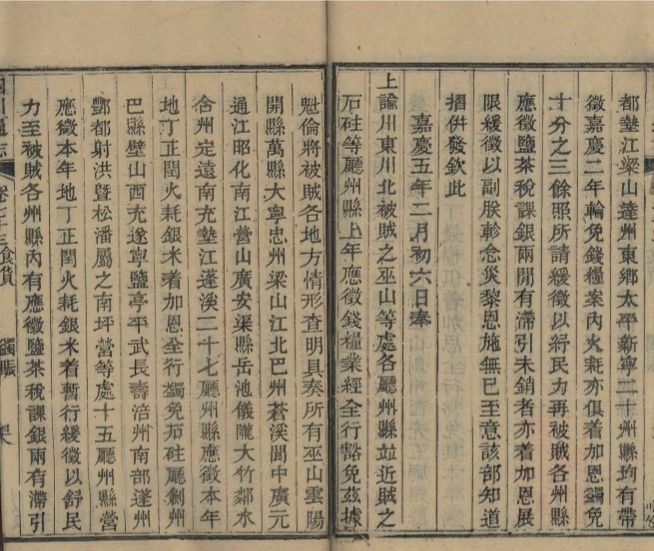 都墊江梁山達州東鄉太平新寧二十州縣均有帶
徵嘉慶二年輪免錢糧案內火耗亦俱着加恩蠲免
十分之三餘照所請緩徵以紓民力再被賊各州縣
應徵鹽茶稅課銀兩閒有滯引未銷者亦着加恩展
限緩徵以副朕軫念災黎恩施無已至意該部知道
摺併發欽此
嘉慶五年二月初六日奉
上諭川東川北被賊之巫山等處各廳州縣並近賊之
石砫等廳州縣上年應徵錢糧業經全行豁免茲據
魁倫將被賊各地方情形查明具奏所有巫山雲陽
開縣萬縣大寧忠州梁山江北巴州蒼溪閬中廣元
通江昭化南江營山廣安渠縣岳池儀隴大竹鄰水
合州定遠南充墊江蓬溪二十七廳州縣應徵本年
地丁正閏火耗銀米着加恩全行蠲免石砫廳劍州
巴縣壁山西充遂寧鹽亭平武長壽涪州南部蓬州
酆都射洪暨松潘屬之南坪營等處十五廳州縣營
應徵本年地丁正閏火耗銀米着暫行緩徵以舒民
力至被賊各州縣內有應徵鹽茶稅課銀兩有滯引
四川通志
卷七十三食貨
蠲賑